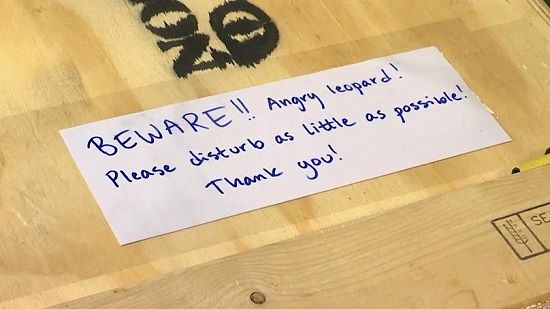 BEWARE!! Angry leopard!
Please disturb as little as possible!
Thank you!
SE